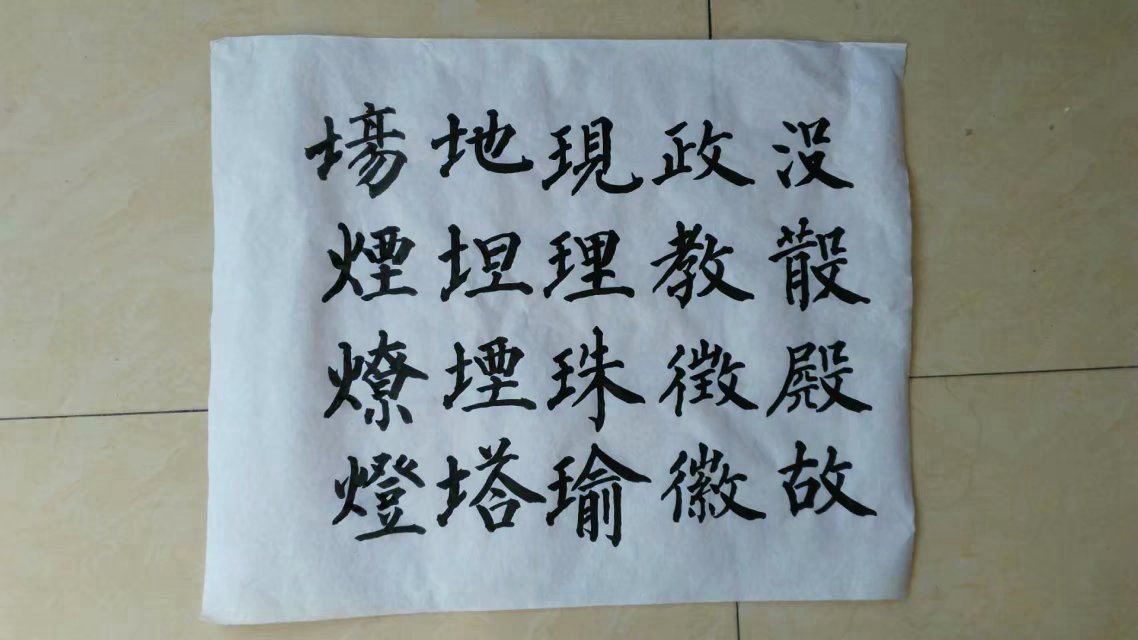 没殿故
政教徵徽
現理珠瑜
地坦堙塔
場煙燎燈